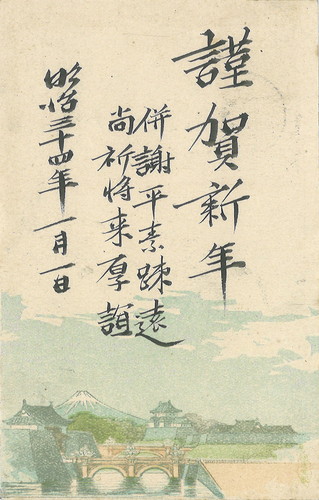 謹賀新年
併謝平素踈遠
尚祈将来厚誼
明治三十四年一月一日